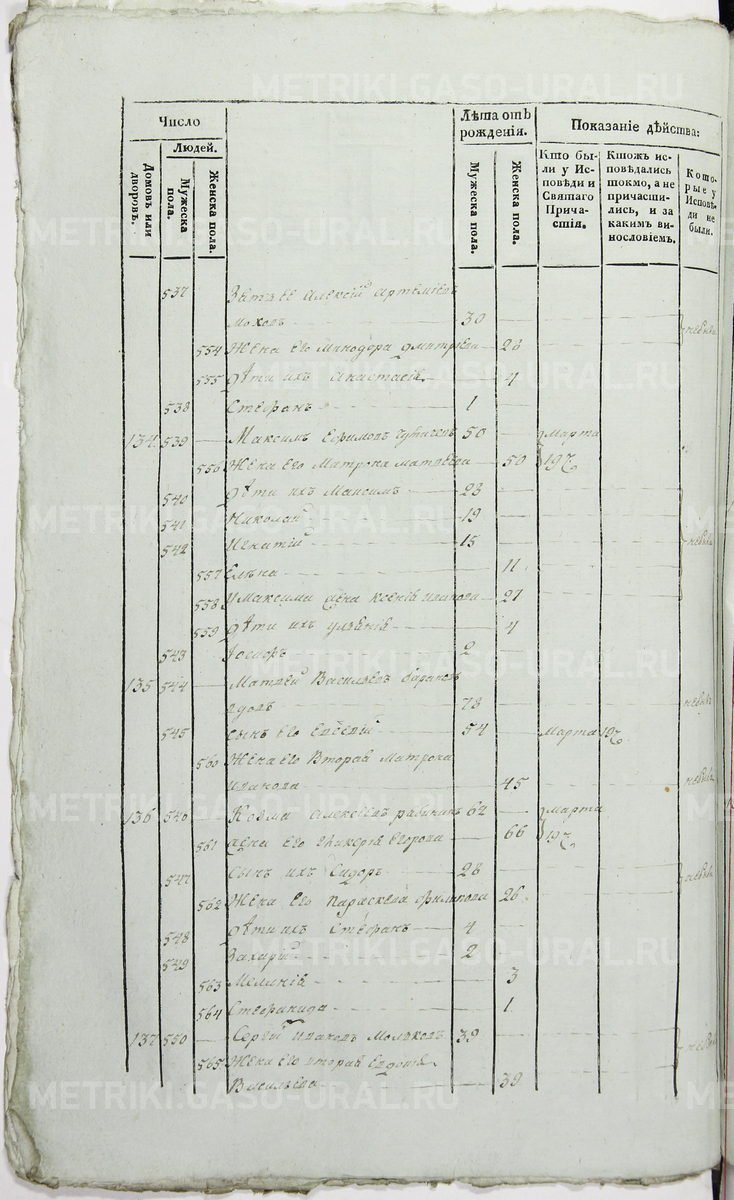 METRIKI.GASO-URAL.RU
Число
Людей.
Домовъ или дворовъ.
Мужеска пола.
Женска пола.
Лѣта отъ рожденія.
Мужеска пола.
Женска пола.
Показаніе дѣйства:
Кто бы-
ли у Ис-
повѣди и
Святаго
Прича-
стія.
Ктожъ ис-
повѣдались
токмо, а не
причасти-
лись, и за
какимъ ви-
нословіемъ.
Кото-
рые у
Исповѣ-
ди не
были.
537 Зять ее Алексѣй Артемьевъ
30
небыли
554 Жена его Минодора Дмитріева 28
555 Дѣти ихъ Анастасія 4
538 Стефанъ 1
134 539 Максимъ Ефимовъ 50 Марта
556 Жена его Матрона Матвѣева 50 19
540 Дѣти ихъ Максимъ 23
541 Николай 19
542 Игнатій 15 небыли
557 Елена 11
558 У Максима жена Ксенія 27
559 Дѣти ихъ 4
543 Іосифъ 2
135 544 Матвей Васильевъ
78 небылъ
545 Сынъ его Евсевій 54 Марта 19
560 Жена его вторая Матрона
Иванова 45 небыла
136 546 Козма Алексѣевъ 62 Марта
561 Жена его Гликерія Егорова 66 19
547 Сынъ ихъ Сидоръ 28 небыли
562 Жена его Параскева Филипова 26
548 Дѣти ихъ Стефанъ 4
549 Захарій 2
563 Меланія 3
564 Стефанида 1
137 550 Сергій 39
565 Жена его вторая Евдокія
Васильева 39